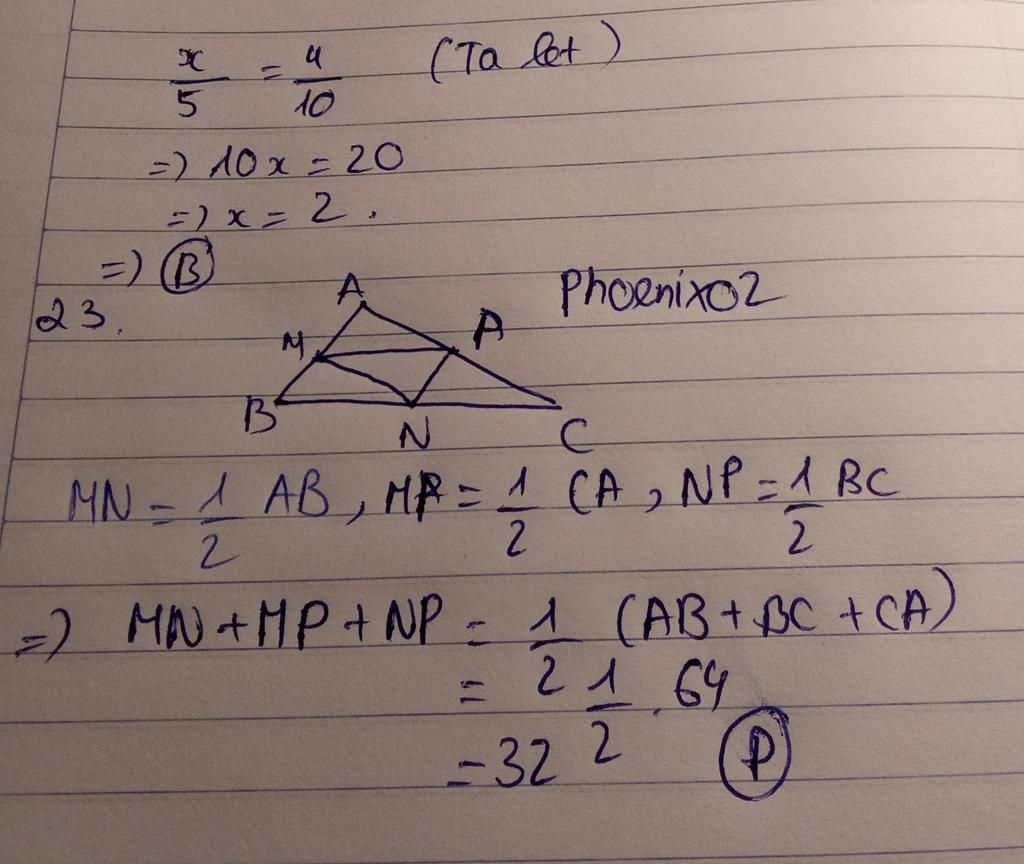 x/5 = 4/10 (Ta let)
=) 10x = 20
=) x = 2.
=) B
Phoenix02
23.
A
M P
B N C
MN = 1/2 AB, MP = 1/2 CA, NP = 1/2 BC
=) MN + MP + NP = 1/2 (AB + BC + CA)
= 1/2 . 64
= 32 P